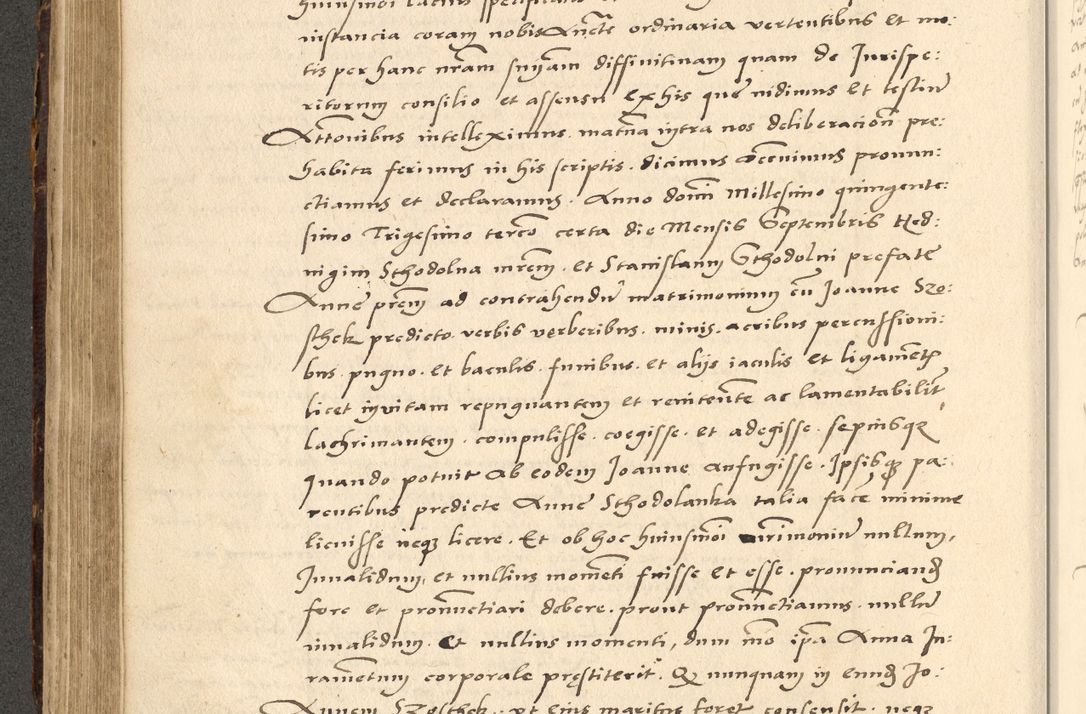 instancia coram nobis Ancte ordinaria vertentibus et mo:
tis per hanc nram snÿam diffinitivam quam de Jurispe:
ritorum consilio et assensu Ex his que vidimus Et testiu
Attonibus intelleximus. matña intra nos deliberacioñ pre:
habita ferimus in his scriptis. dicimus decernimus pronun:
ctiamus et declaramus. Anno domi Millesimo quingente:
simo Trigesimo tercio certa die Mensis Septembris Hed:
nigim Schodolna mrem. et Stanislaum Gthodolni prefate
Anne prem ad contrahendu matrimonium cu Joanne Szo:
sthek predicto. verbis verberibus. minis. acribus percussioni:
bus. pugno. et baculis. funibus. et alijs iaculis et ligamet
licet invitam repugnantem et renitente ac lamentabilit
lachrimantem. compulisse. coegisse. et adegisse. sepiusqz
quando potuit ab eodem Joanne aufugisse. Ipsisqz pa:
rentibus predicte Anne Schodolanka talia face minime
licuisse neqz licere. Et ob hoc huiusmoi mrimoniu nullum,
Invalidum, et nullius momēti fuisse et esse. pronunciand
fore et pronuctiari debere. prout pronuctiamus. nullu
invalidum. Et nullius momenti, dum mo ipa Anna Ju:
rametum corporale prestiterit. Q nunquam in eund Jo:
Annem Szosthek. vt eius maritus foret consensit. neqz